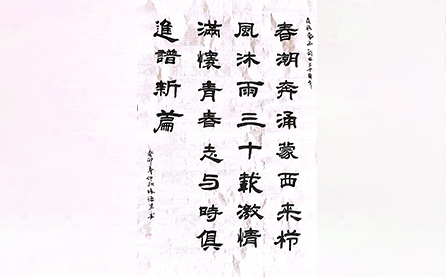 春潮奔涌蒙西来栉
風沐雨三十載激情
滿懷青春志与時俱
進譜新篇
癸卯春
書